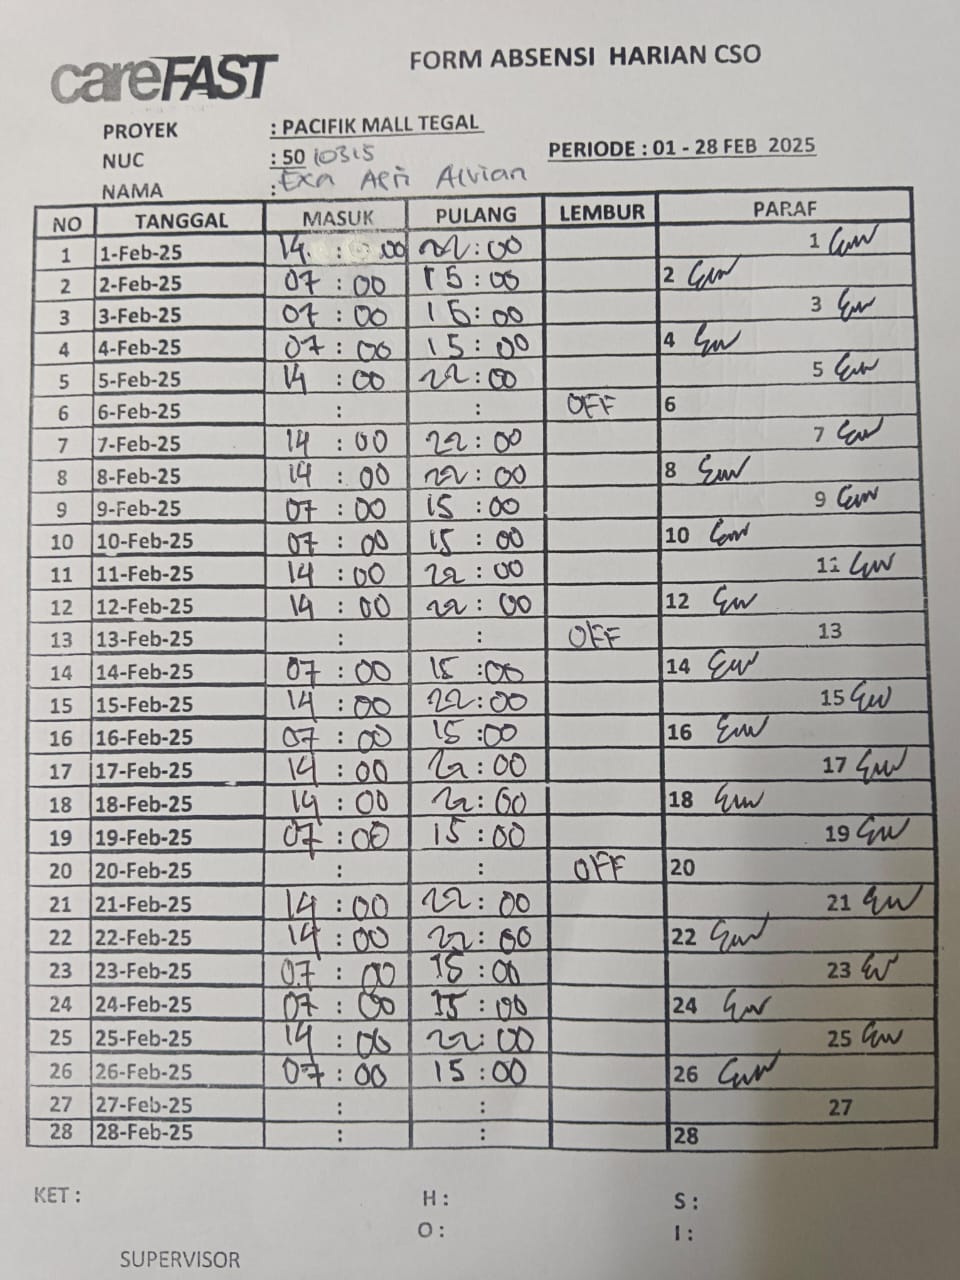 careFAST
FORM ABSENSI HARIAN CSO
PROYEK : PACIFIK MALL TEGAL
NUC : 50 10315
PERIODE : 01 - 28 FEB 2025
NAMA : Exa Alvian
NO TANGGAL MASUK PULANG LEMBUR PARAF
1 1-Feb-25 14 : 00 22:00 1
2 2-Feb-25 07 : 00 15:00 2
3 3-Feb-25 07 : 00 15:00 3
4 4-Feb-25 07 : 00 15:00 4
5 5-Feb-25 14 : 00 22:00 5
6 6-Feb-25 : : OFF 6
7 7-Feb-25 14 : 00 22:00 7
8 8-Feb-25 14 : 00 22:00 8
9 9-Feb-25 07 : 00 15:00 9
10 10-Feb-25 07 : 00 15:00 10
11 11-Feb-25 14 : 00 22:00 11
12 12-Feb-25 14 : 00 22:00 12
13 13-Feb-25 : : OFF 13
14 14-Feb-25 07 : 00 15:00 14
15 15-Feb-25 14 : 00 22:00 15
16 16-Feb-25 07 : 00 15:00 16
17 17-Feb-25 14 : 00 22:00 17
18 18-Feb-25 14 : 00 22:00 18
19 19-Feb-25 07 : 00 15:00 19
20 20-Feb-25 : : OFF 20
21 21-Feb-25 14 : 00 22:00 21
22 22-Feb-25 14 : 00 22:00 22
23 23-Feb-25 07 : 00 15:00 23
24 24-Feb-25 07 : 00 15:00 24
25 25-Feb-25 14 : 00 22:00 25
26 26-Feb-25 07 : 00 15:00 26
27 27-Feb-25 : : 27
28 28-Feb-25 : : 28
KET : H : S :
O : I :
SUPERVISOR